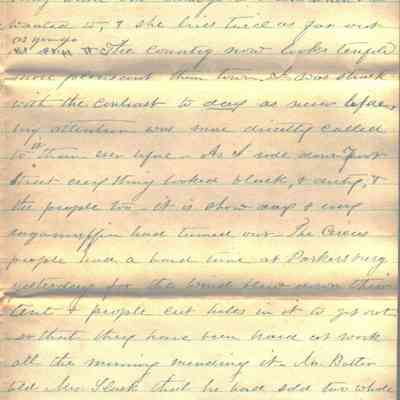 wanted it, & she lives twice as far out
as yours
The Country now looks
more than town. I was struck
with the contrast to day as never before,
my attention was more directly called
to it than ever before - As I rode down Front
Street everything looked black, & dirty, &
the people too - it is show day & every
ragamuffin had turned out - The Circus
people had a hard time at Parkersburg
yesterday for the wind blew down their
tent & people cut holes in it to get out
so that they have been hard at work
all the morning mending it - Mr.
told Mrs. that he had sold two whole